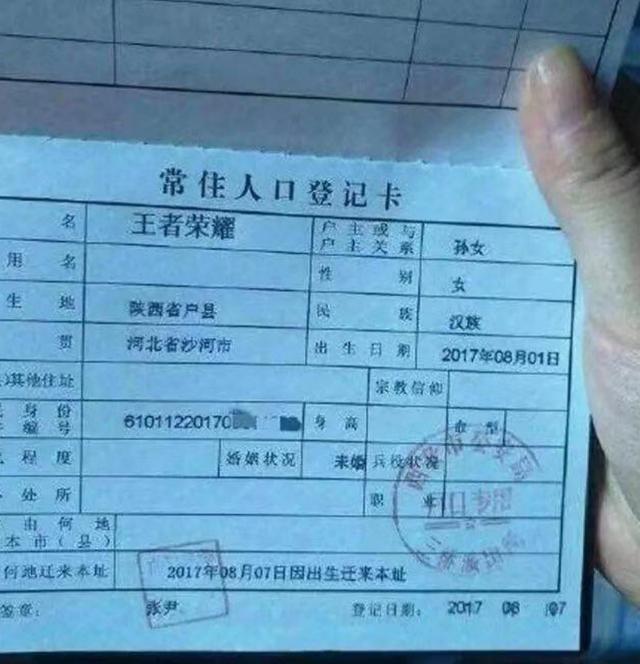 常住人口登记卡
名 王者荣耀 户主或与户主关系 孙女
用名 性别 女
生地 陕西省户县 民族 汉族
贯 河北省沙河市 出生日期 2017年08月01日
)其他住址 宗教信仰
身份 编号 61011220170 身高 血型
程度 婚姻状况 未婚 兵役状况
处所 职业
由何地
本市(县)
何地迁来本址 2017年08月07日因出生迁来本址
签章: 张尹 登记日期: 2017 08 07